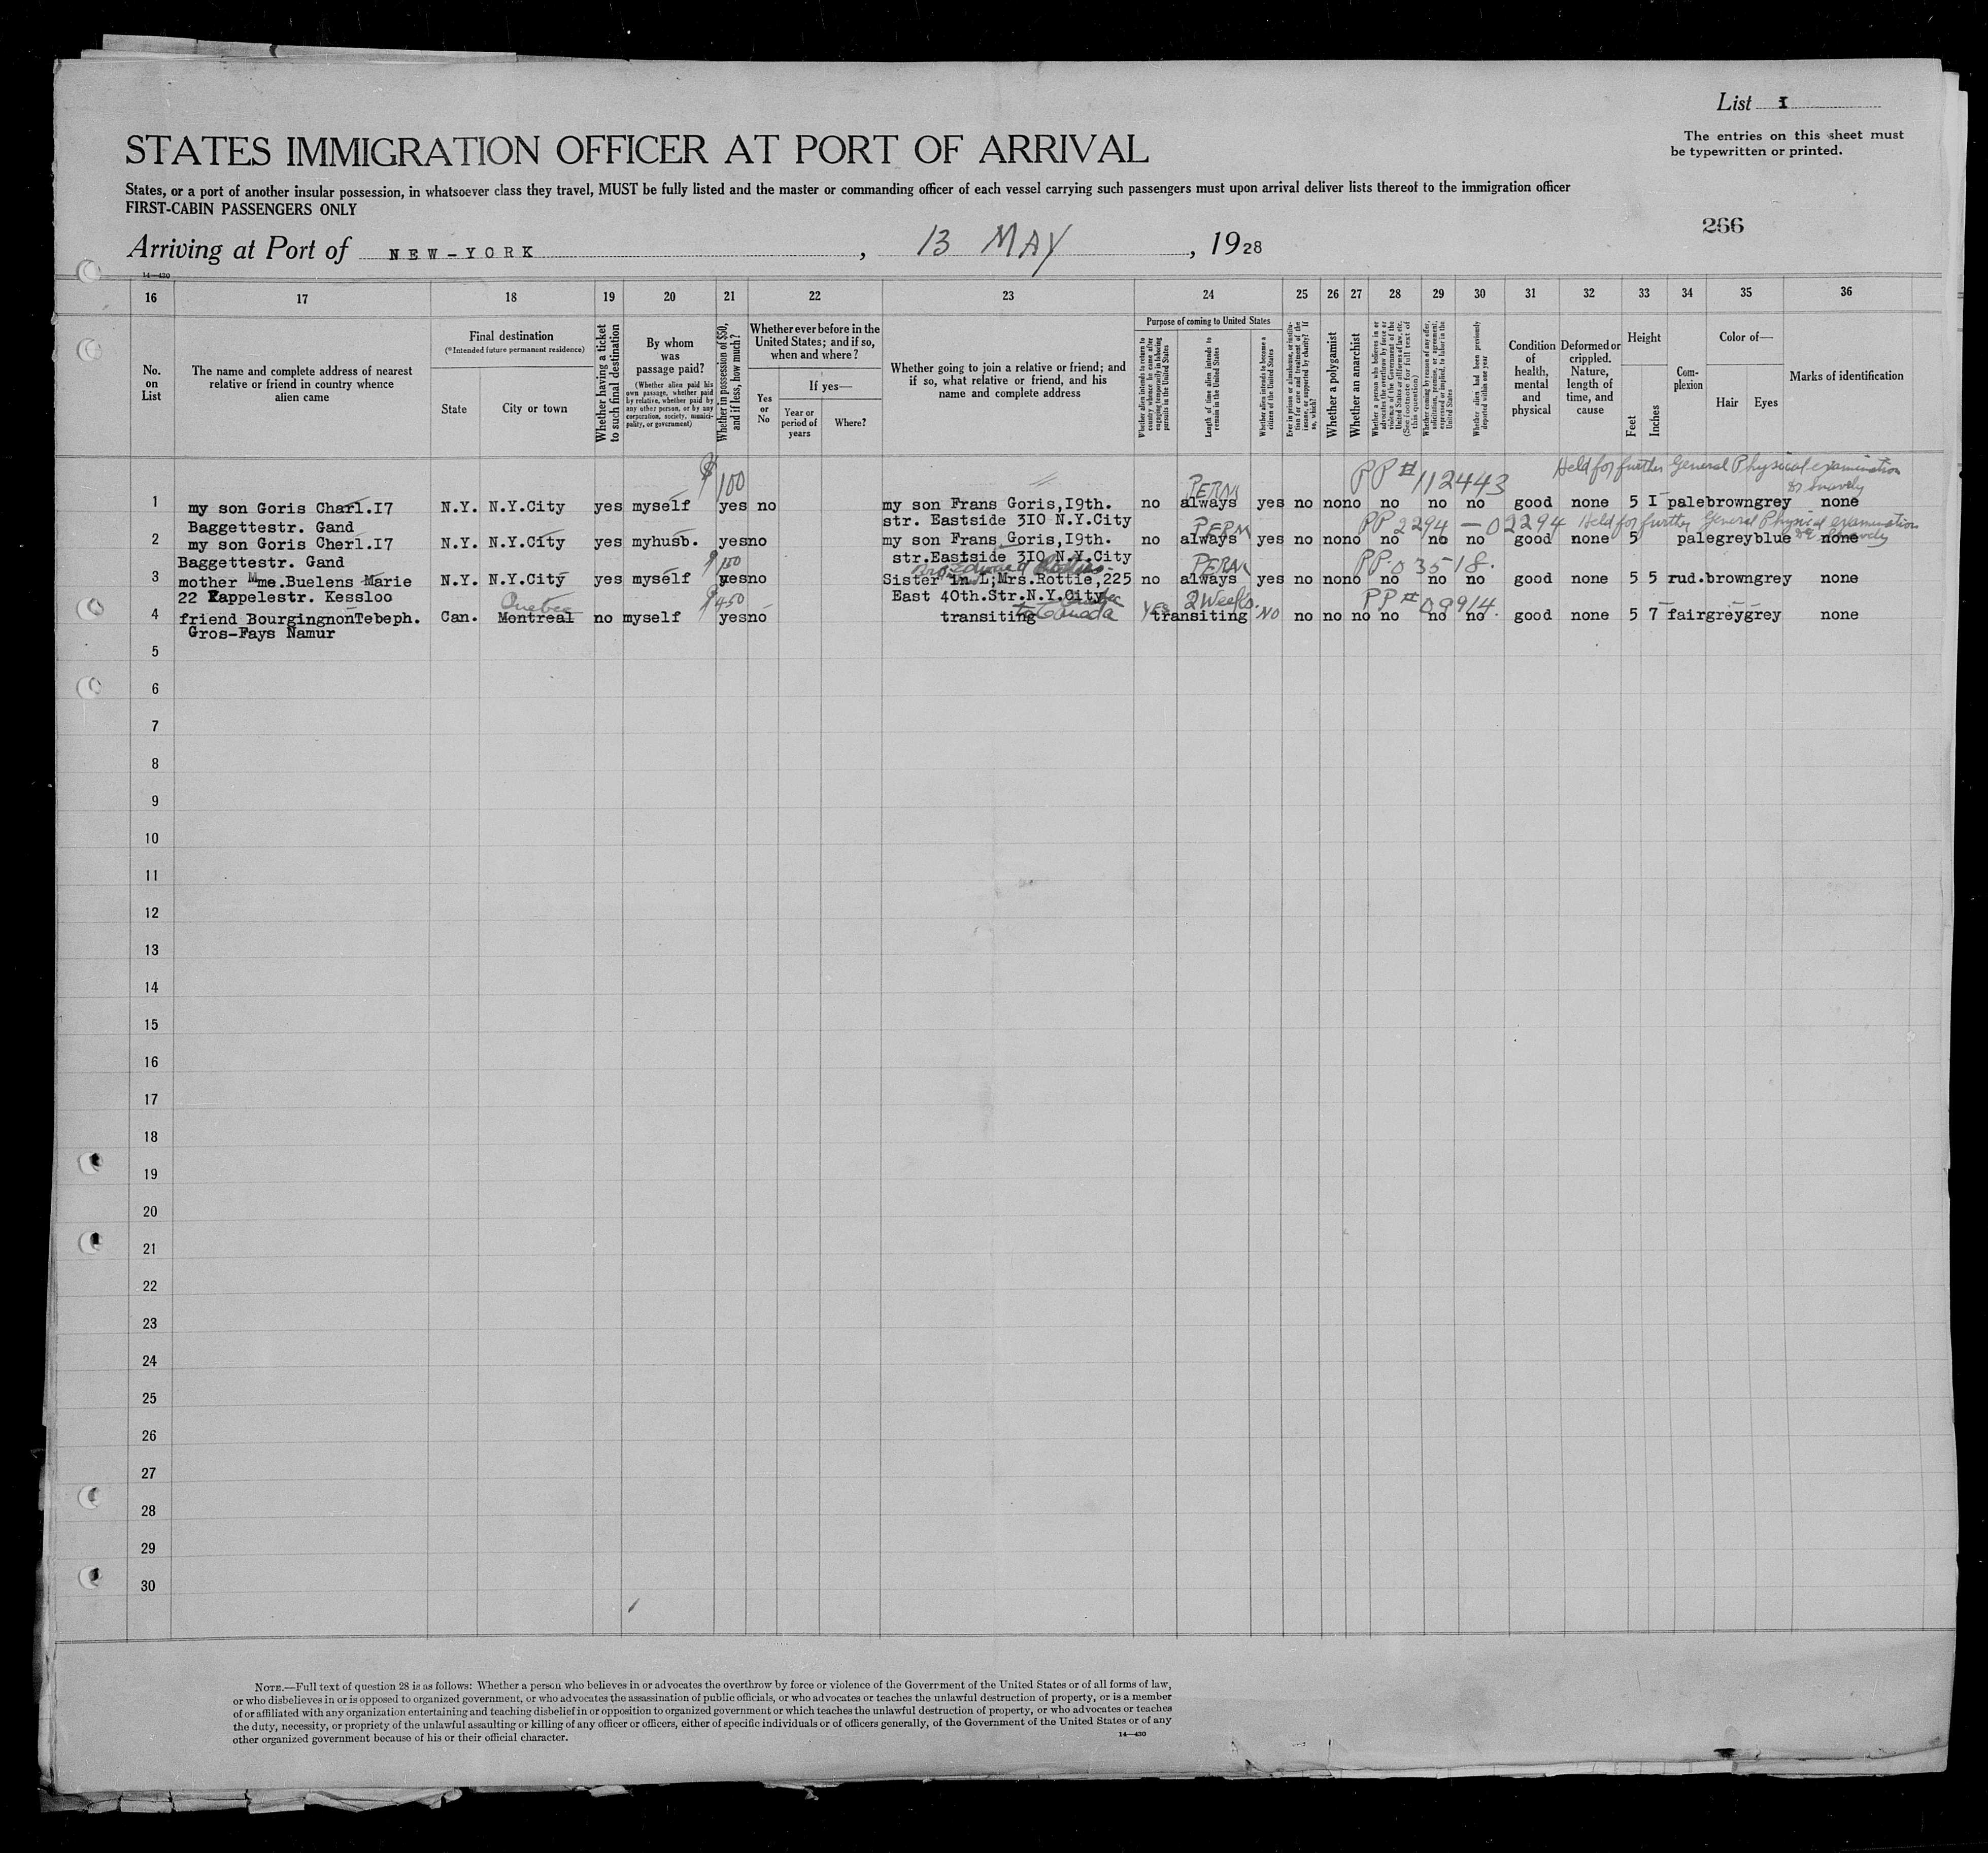 List I
The entries on this sheet must
be typewritten or printed.
STATES IMMIGRATION OFFICER AT PORT OF ARRIVAL
States, or a port of another insular possession, in whatsoever class they travel, MUST be fully listed and the master or commanding officer of each vessel carrying such passengers must upon arrival deliver lists thereof to the immigration officer
FIRST-CABIN PASSENGERS ONLY
266
Arriving at Port of NEW-YORK, 13 MAY, 1928
14—430
16 17 18 19 20 21 22 23 24 25 26 27 28 29 30 31 32 33 34 35 36
No. on List
The name and complete address of nearest relative or friend in country whence alien came
Final destination
(*Intended future permanent residence)
State
City or town
Whether having a ticket to such final destination
By whom was passage paid?
(Whether alien paid his own passage, whether paid by relative, whether paid by any other person, or by any corporation, society, municipality, or government)
Whether in possession of $50, and if less, how much?
Whether ever before in the United States; and if so, when and where?
Yes or No
If yes—
Year or period of years
Where?
Whether going to join a relative or friend; and if so, what relative or friend, and his name and complete address
Purpose of coming to United States
Whether alien intends to return to country whence he came after engaging temporarily in laboring pursuits in the United States
Length of time alien intends to remain in the United States
Whether alien intends to become a citizen of the United States
Ever in prison or almshouse, or institution for care and treatment of the insane, or supported by charity? If so, which?
Whether a polygamist
Whether an anarchist
Whether a person who believes in or advocates the overthrow by force or violence of the Government of the United States or all forms of law, etc. (See footnote for full text of this question)
Whether coming by reason of any offer, solicitation, promise, or agreement, expressed or implied, to labor in the United States
Whether alien had been previously deported within one year
Condition of health, mental and physical
Deformed or crippled. Nature, length of time, and cause
Height
Feet
Inches
Complexion
Color of—
Hair
Eyes
Marks of identification
$100 PERM PP # 112443 Held for further General Physical examination
Dr Snavely
1 my son Goris Charl.I7 N.Y. N.Y.City yes myself yes no my son Frans Goris,I9th. no always yes no no no no no no good none 5 I pale brown grey none
Baggettestr. Gand str. Eastside 3IO N.Y.City
PERM PP 2294 — 02294 Held for further General Physical examination
2 my son Goris Cherl.I7 N.Y. N.Y.City yes myhusb. yes no my son Frans Goris,I9th. no always yes no no no no no no good none 5 pale grey blue none
Baggettestr. Gand str.Eastside 3IO N.Y.City
$100 PERM PP. 03518.
3 mother Mme.Buelens Marie N.Y. N.Y.City yes myself yes no Sister in L;Mrs.Rottie,225 no always yes no no no no no no good none 5 5 rud. brown grey none
22 Kappelestr. Kessloo East 4Oth.Str.N.Y.City
Quebec $450 to Canada YES 2 Weeks. NO PP # 09914.
4 friend BourgingnonTebeph. Can. Montreal no myself yes no transiting transiting no no no no no no good none 5 7 fair grey grey none
Gros-Fays Namur
5
6
7
8
9
10
11
12
13
14
15
16
17
18
19
20
21
22
23
24
25
26
27
28
29
30
NOTE.—Full text of question 28 is as follows: Whether a person who believes in or advocates the overthrow by force or violence of the Government of the United States or of all forms of law,
or who disbelieves in or is opposed to organized government, or who advocates the assassination of public officials, or who advocates or teaches the unlawful destruction of property, or is a member
of or affiliated with any organization entertaining and teaching disbelief in or opposition to organized government or which teaches the unlawful destruction of property, or who advocates or teaches
the duty, necessity, or propriety of the unlawful assaulting or killing of any officer or officers, either of specific individuals or of officers generally, of the Government of the United States or of any
other organized government because of his or their official character.
14—430